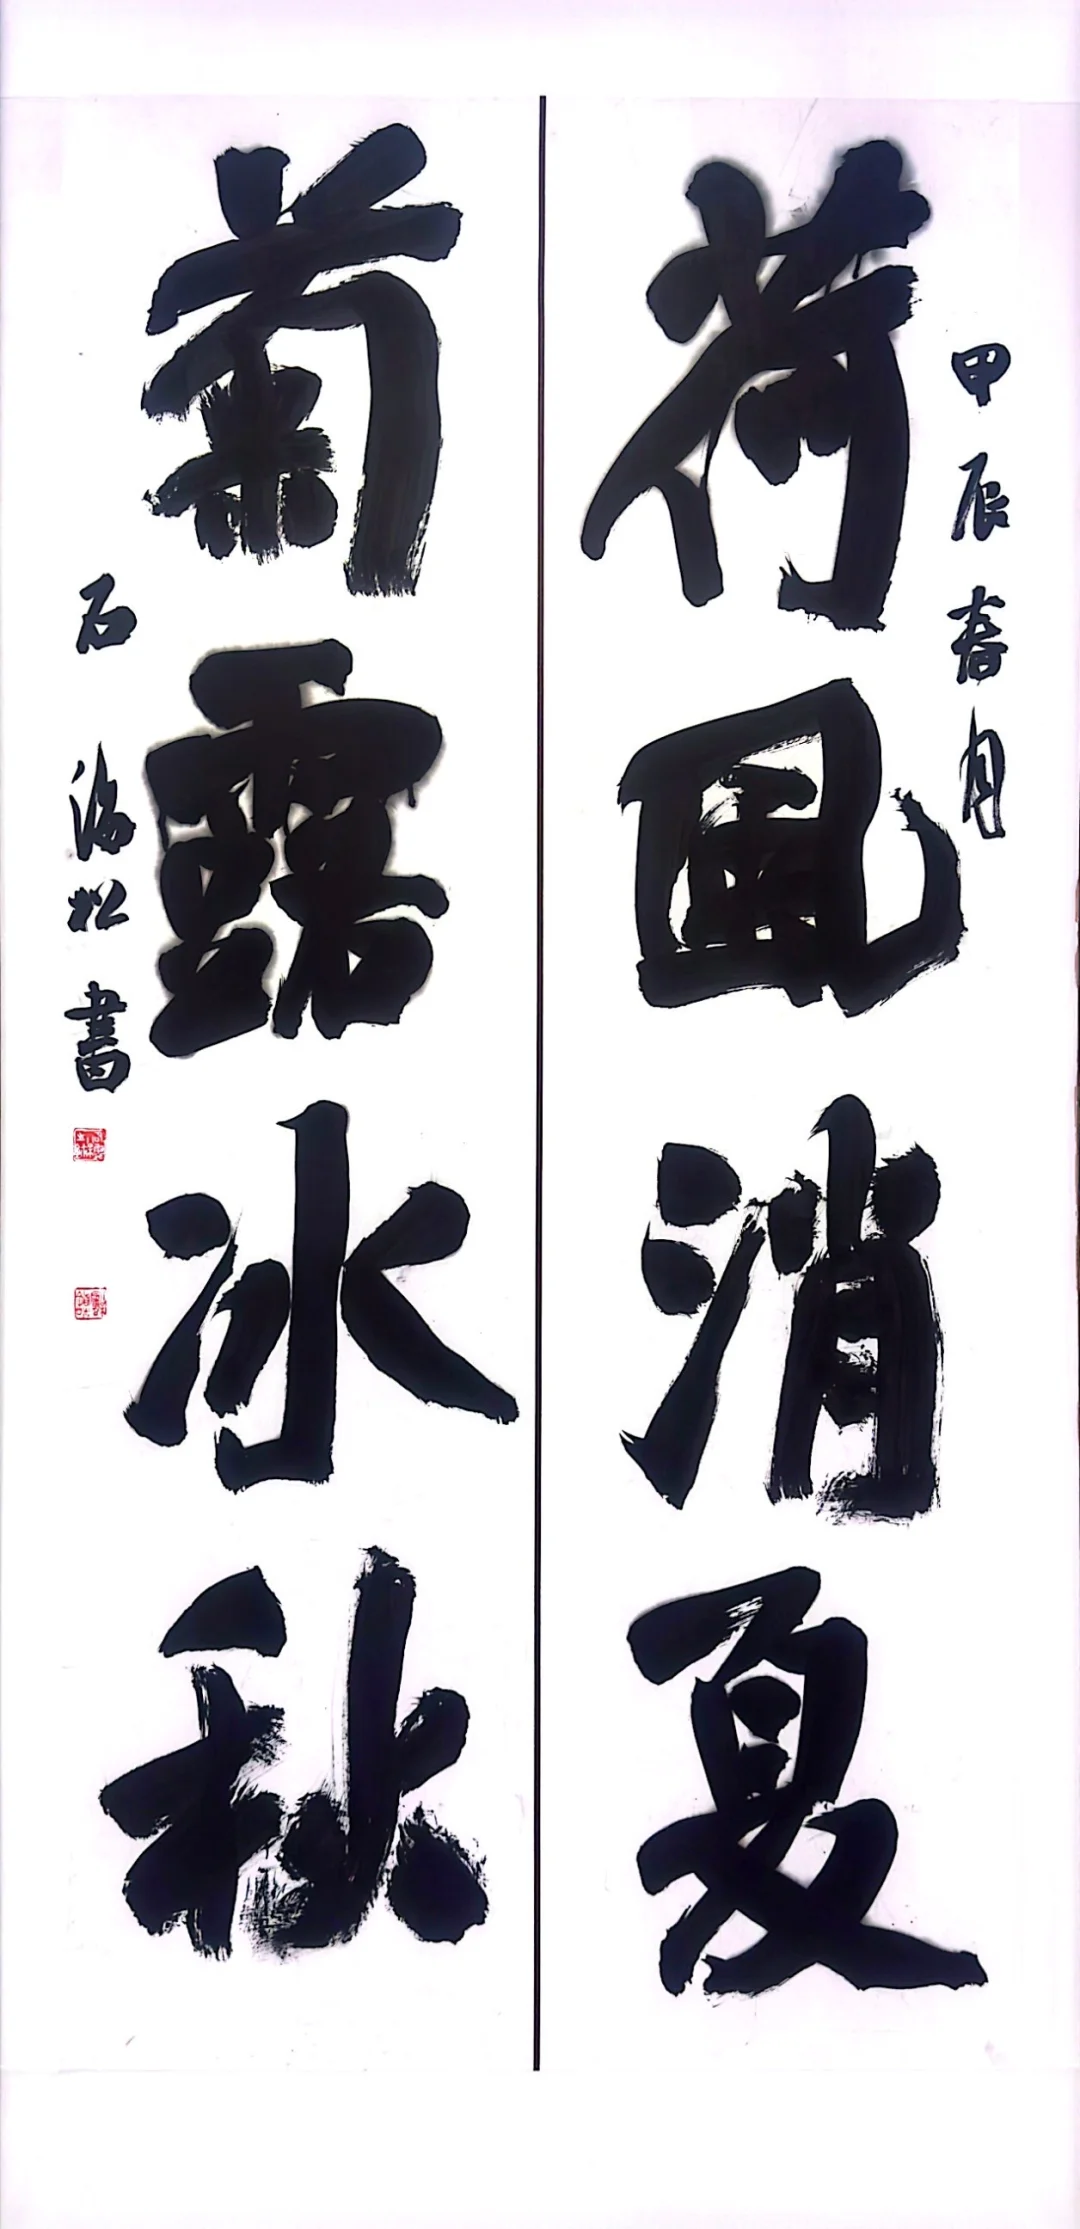 甲辰春月
荷風消夏
菊露冰秋
石海松書